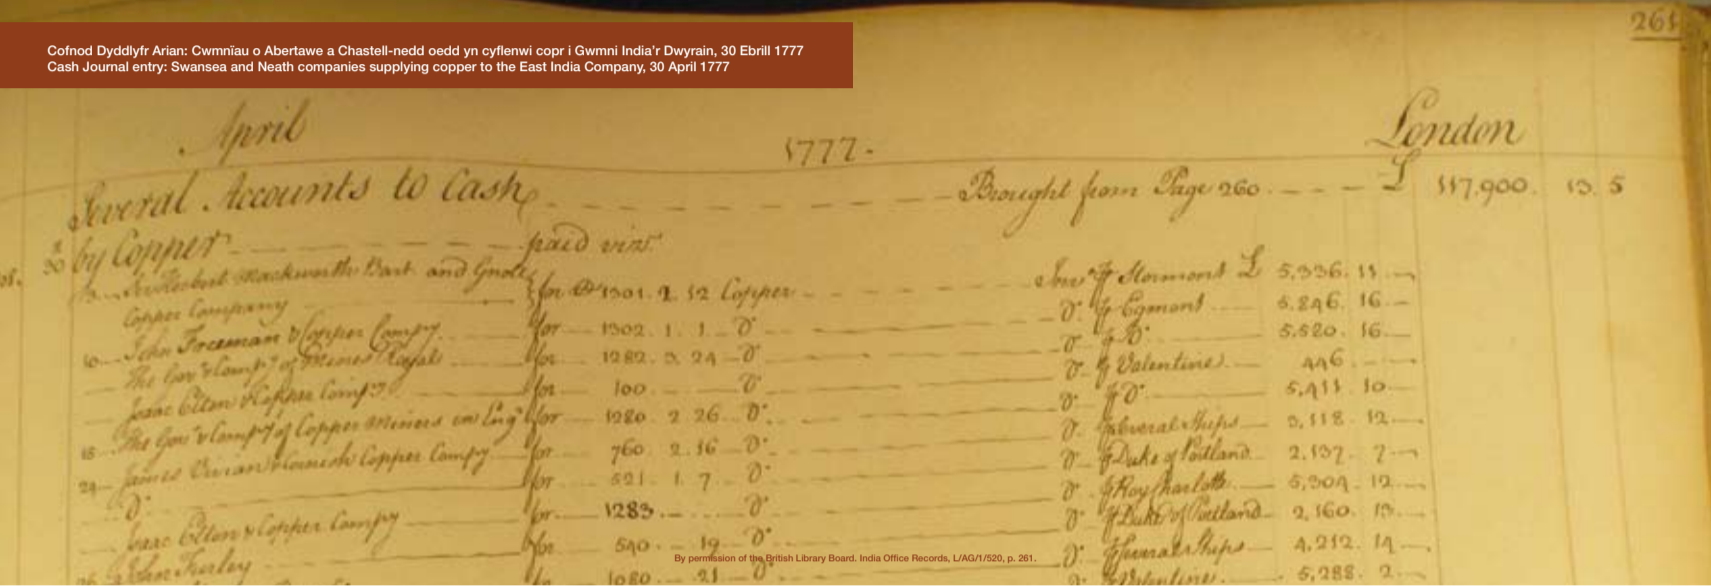 Cofnod Dyddlyfr Arian: Cwmnïau o Abertawe a Chastell-nedd oedd yn cyflenwi copr i Gwmni India'r Dwyrain, 30 Ebrill 1777
Cash Journal entry: Swansea and Neath companies supplying copper to the East India Company, 30 April 1777
261
April 1777. London
Several Accounts to Cash Brought from Page 260 £ 117,900. 13. 5
30 by Copper paid vizt
Sr. Herbert Mackworth Bart. and Gnoll
Copper Company for 1301. 2. 12 Copper £ 5,336. 11
10 John Freeman & Copper Compy for 1302. 1. 1. Do. Do. Egmont 5.246. 16
The Govr & Compy of Mines Royale for 1282. 3. 24 Do. Do. Do. 5.520. 16
Isaac Elton & Copper Compy for 100 Do. Do. Valentine 446
The Govr & Compy of Copper Miners in Engd for 1280 2 26 Do. Do. Do. 5,411. 10
24 James Vivian & Cornish Copper Compy for 760. 2. 16 Do. Do. Several Ships 3,118. 12
Do. for 521. 1. 7 Do. Do. Duke of Portland 2.137. 7
Isaac Elton & Copper Compy for 1283 Do. Do. Roy. Charlotte 5,304. 12
John Furley for 540. 19 Do. Do. Duke of Portland 2,160. 13
1080 21 Do. Do. Several Ships 4,212. 14
Do. Valentine 5,288. 2
By permission of the British Library Board. India Office Records, L/AG/1/520, p. 261.